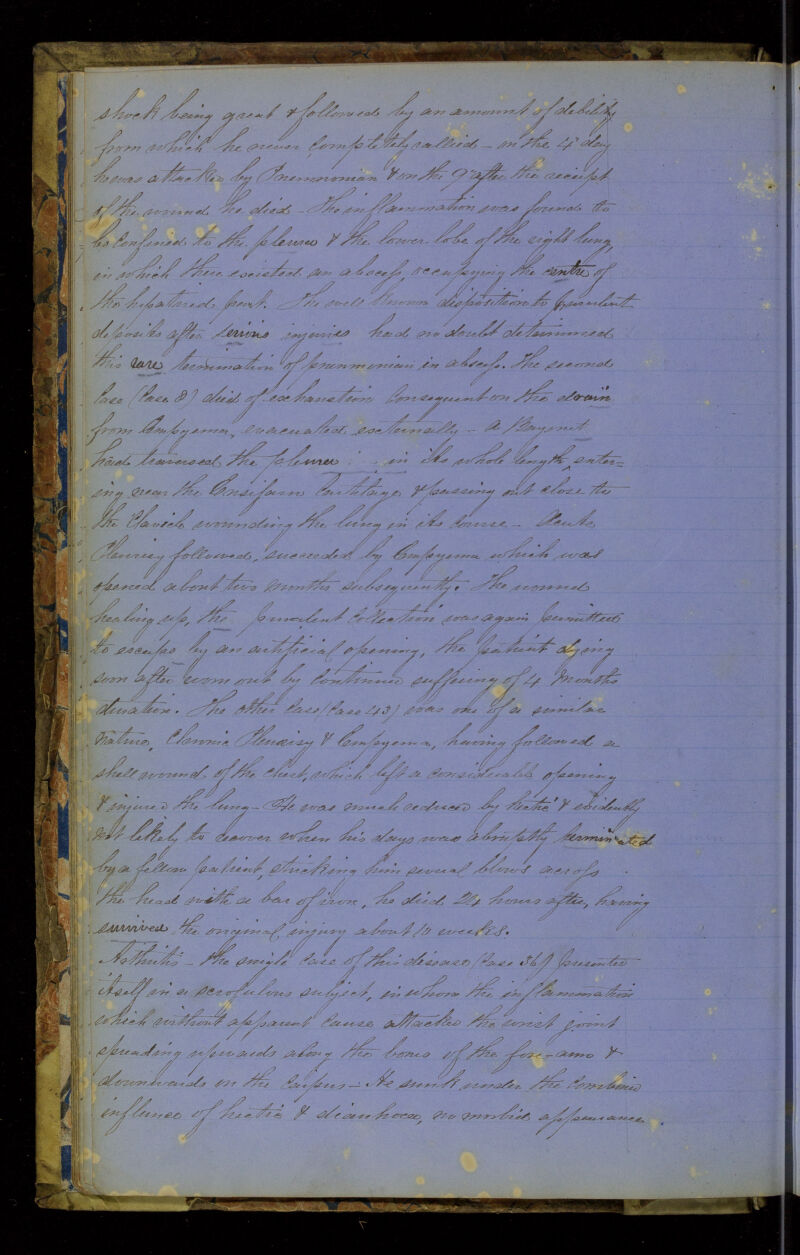 shock being great & followed by an amount of debility
from which he never completely rallied - on the 4th day
he was attacked by Pneumonia & on the 9th after the receipt
of the wound he died - The inflammation was found to
be confined to the pleura & the lower lobe of the right lung,
in which there existed an abscess, occupying the centre of
the hepatized part. The well known disposition to purulent
deposits after serious injuries had no doubt determined
this rare termination of pneumonia in abscess. The second
Case (Case 8) died of exhaustion consequent on the drain
from Empyema, evacuated externally - A Bayonet
had traversed the pleura in its whole length, enter-
ing near the Ensiform Cartilage & passing out close to
the Clavicle wounding the lung in its course - Acute
Pleurisy followed, succeeded by Empyema which was
opened about two months subsequently. The wound
healing up, the purulent collection was again permitted
to escape by an artificial opening, the patient dying
soon after worn out by continued suffering of 4 months
duration. The other Case (Case 43) was one of a similar
nature, Chronic Pleurisy & Empyema, having followed a
shell wound of the chest, which left a considerable opening
& injured the lung - He was much reduced by hectic & evidently
not likely to recover when his days was abruptly terminated
by a fellow patient, striking him several blows across
the head with a bar of iron, he died 24 hours after, having
survived the original injury about 10 weeks.
Arthritis - the single case of this disease (Case 36) presented
itself in a scrofulous subject, in whom the inflammation
which without apparent cause attacked the wrist joint
spreading upwards along the bones of the fore-arm &
downwards on the Carpus - He sunk under the combined
influence of hectic & diarrhoea, no morbid appearance